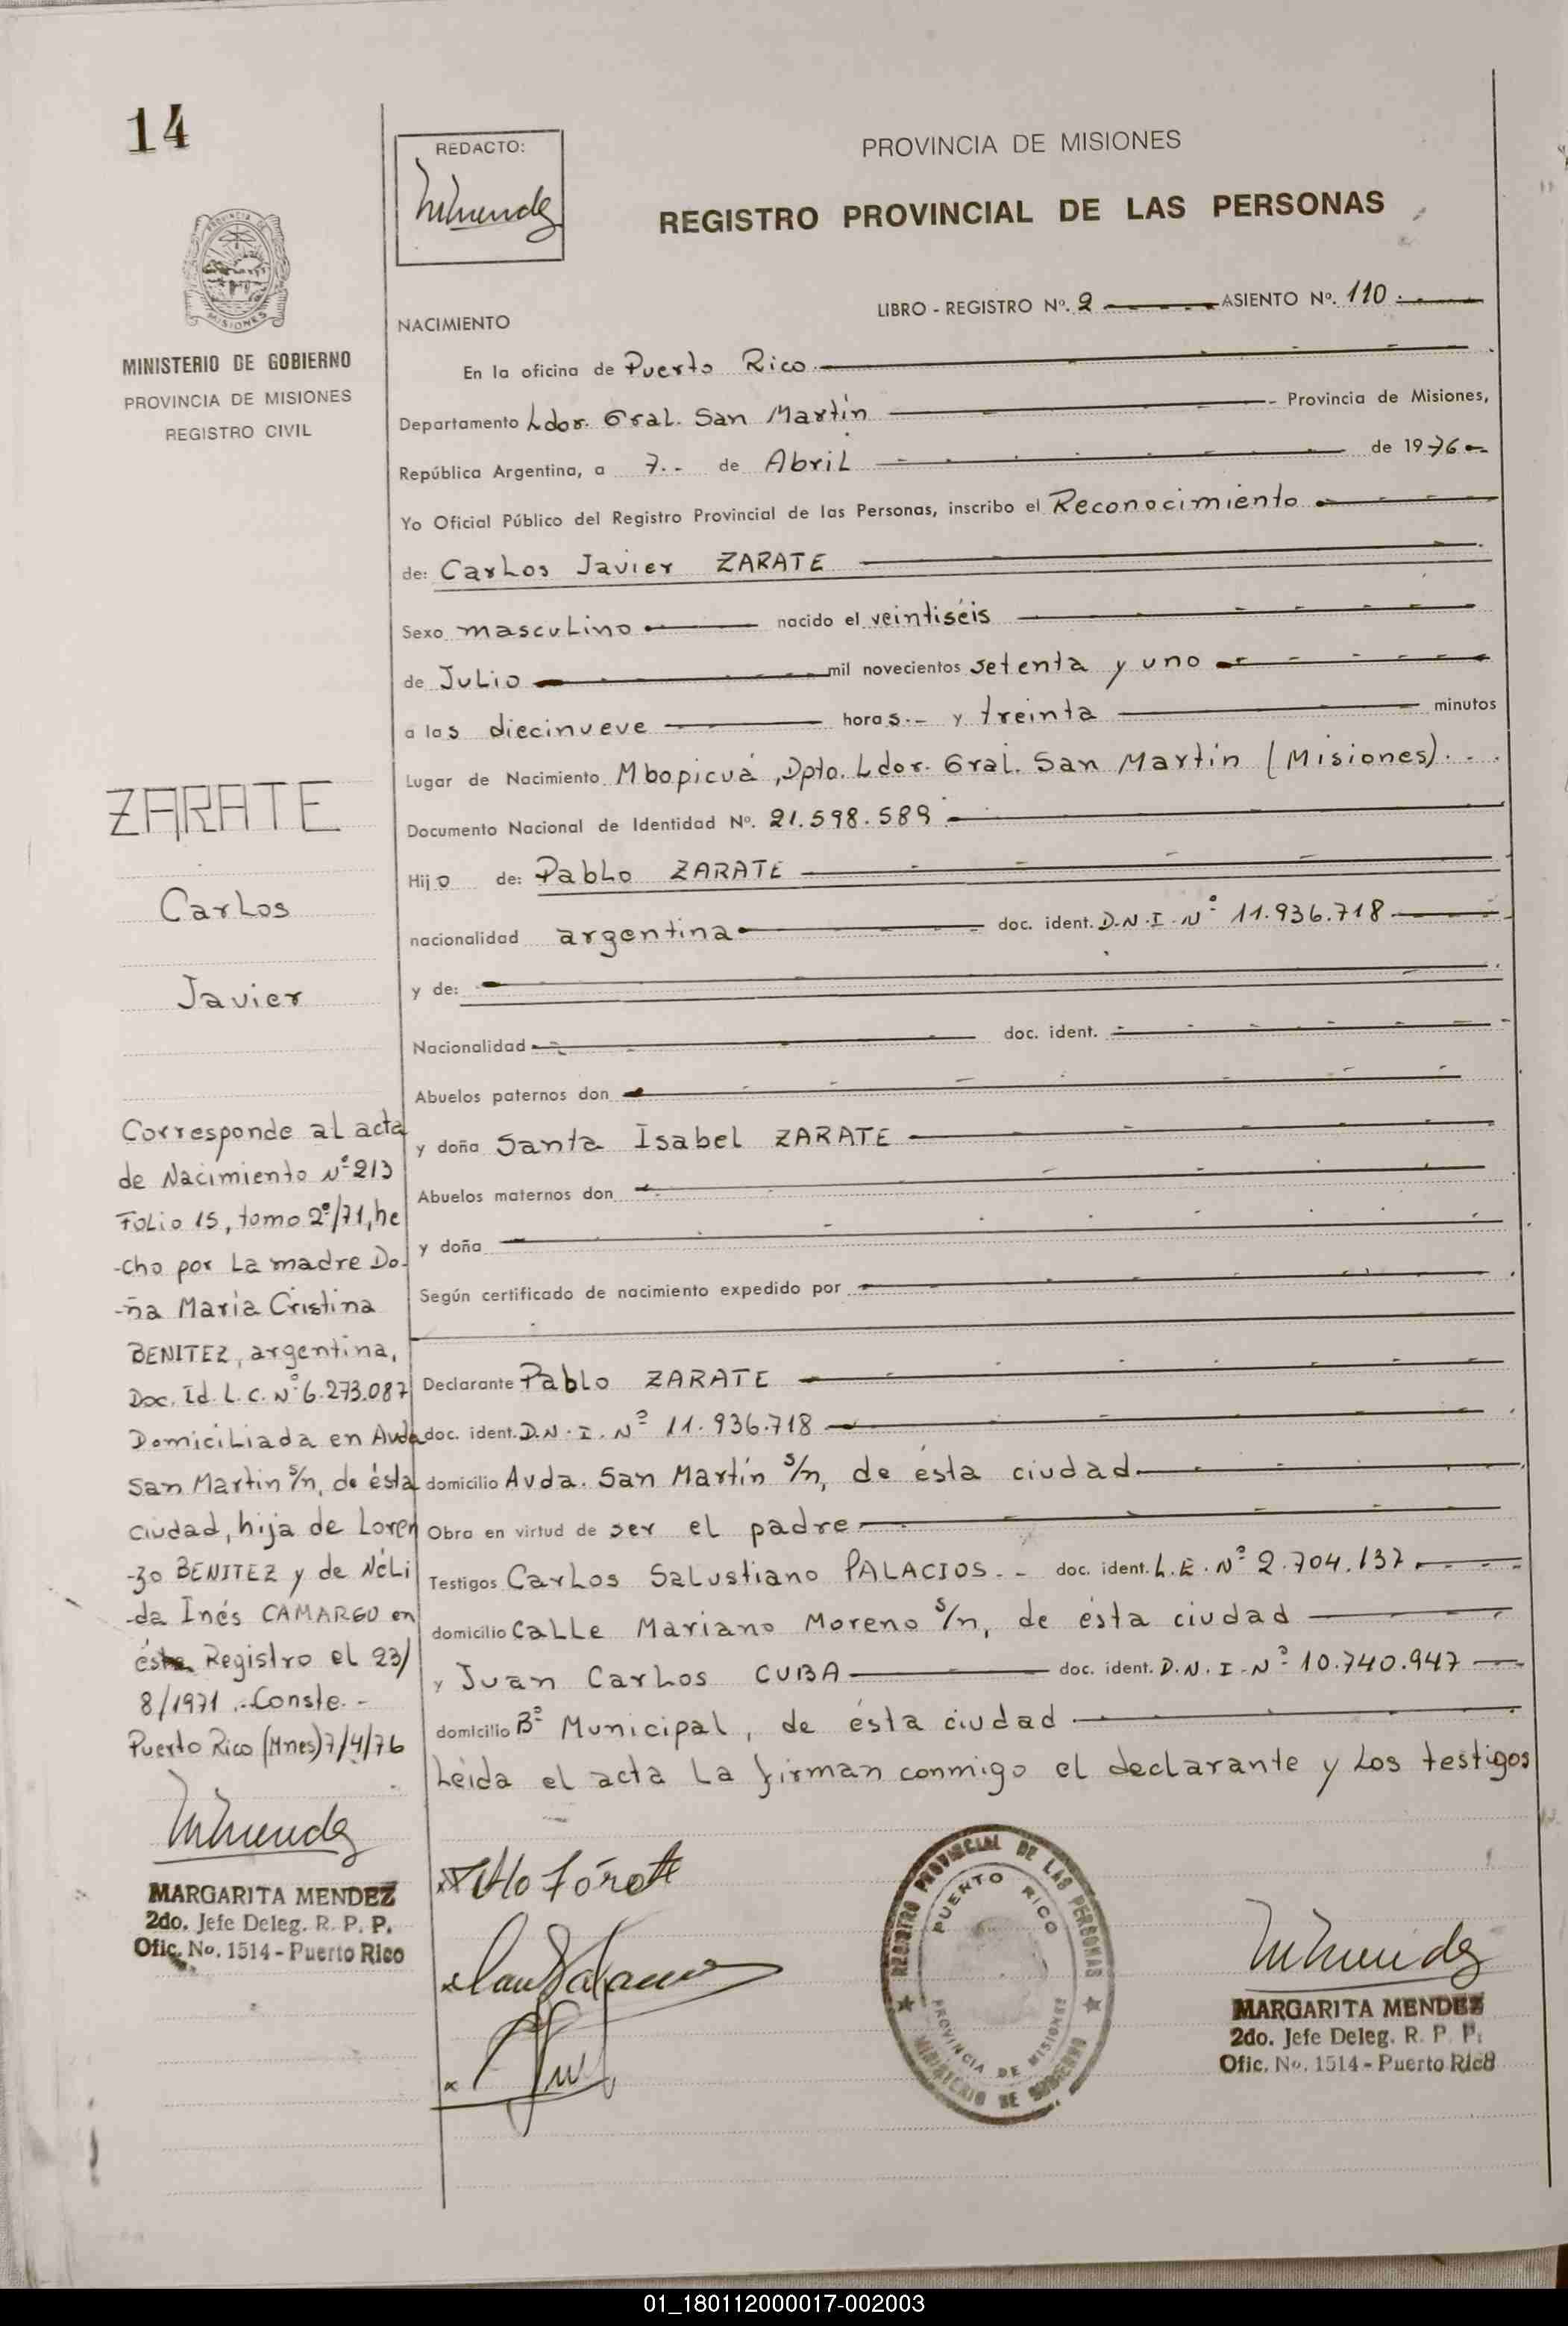 14
REDACTO:
PROVINCIA DE MISIONES
REGISTRO PROVINCIAL DE LAS PERSONAS
MISIONES
MINISTERIO DE GOBIERNO
PROVINCIA DE MISIONES
REGISTRO CIVIL
LIBRO - REGISTRO Nº. 2 ASIENTO Nº. 110.
NACIMIENTO
En la oficina de Puerto Rico
Departamento Ldor. Gral. San Martín - Provincia de Misiones,
República Argentina, a 7.- de Abril de 1976
Yo Oficial Público del Registro Provincial de las Personas, inscribo el Reconocimiento
de: Carlos Javier ZARATE
Sexo masculino nacido el veintiséis
de Julio mil novecientos setenta y uno
a las diecinueve horas.- y treinta minutos
Lugar de Nacimiento Mbopicuá, Dpto. Ldor. Gral. San Martín (Misiones).
Documento Nacional de Identidad Nº. 21.598.589
Hijo de: Pablo ZARATE
nacionalidad argentina doc. ident. D.N.I. Nº 11.936.718
y de:
Nacionalidad doc. ident.
Abuelos paternos don
y doña Santa Isabel ZARATE
Abuelos maternos don
y doña
Según certificado de nacimiento expedido por
Declarante Pablo ZARATE
doc. ident. D.N.I. Nº 11.936.718
domicilio Avda. San Martín s/n, de ésta ciudad
Obra en virtud de ser el padre
Testigos Carlos Salustiano PALACIOS.- doc. ident. L.E. Nº 2.704.137
domicilio Calle Mariano Moreno s/n, de ésta ciudad
y Juan Carlos CUBA doc. ident. D.N.I. Nº 10.740.947
domicilio Bº Municipal, de ésta ciudad
Leída el acta la firman conmigo el declarante y los testigos
ZARATE
Carlos
Javier
Corresponde al acta
de Nacimiento Nº 213
Folio 15, tomo 2º/71, he
-cho por la madre Do-
-ña María Cristina
BENITEZ, argentina,
Doc. Id. L.C. Nº 6.273.087
Domiciliada en Avda
San Martin s/n, de ésta
ciudad, hija de Loren
-zo BENITEZ y de Néli
-da Inés CAMARGO en
Registro el 23/
8/1971.-Conste.-
Puerto Rico (Mnes) 7/4/76
MARGARITA MENDEZ
2do. Jefe Deleg. R. P. P.
Ofic. No. 1514 - Puerto Rico
REGISTRO PROVINCIAL DE LAS PERSONAS
PUERTO RICO
PROVINCIA DE MISIONES
MINISTERIO DE GOBIERNO
MARGARITA MENDEZ
2do. Jefe Deleg. R. P. P.
Ofic. No. 1514 - Puerto Rico
01_180112000017-002003